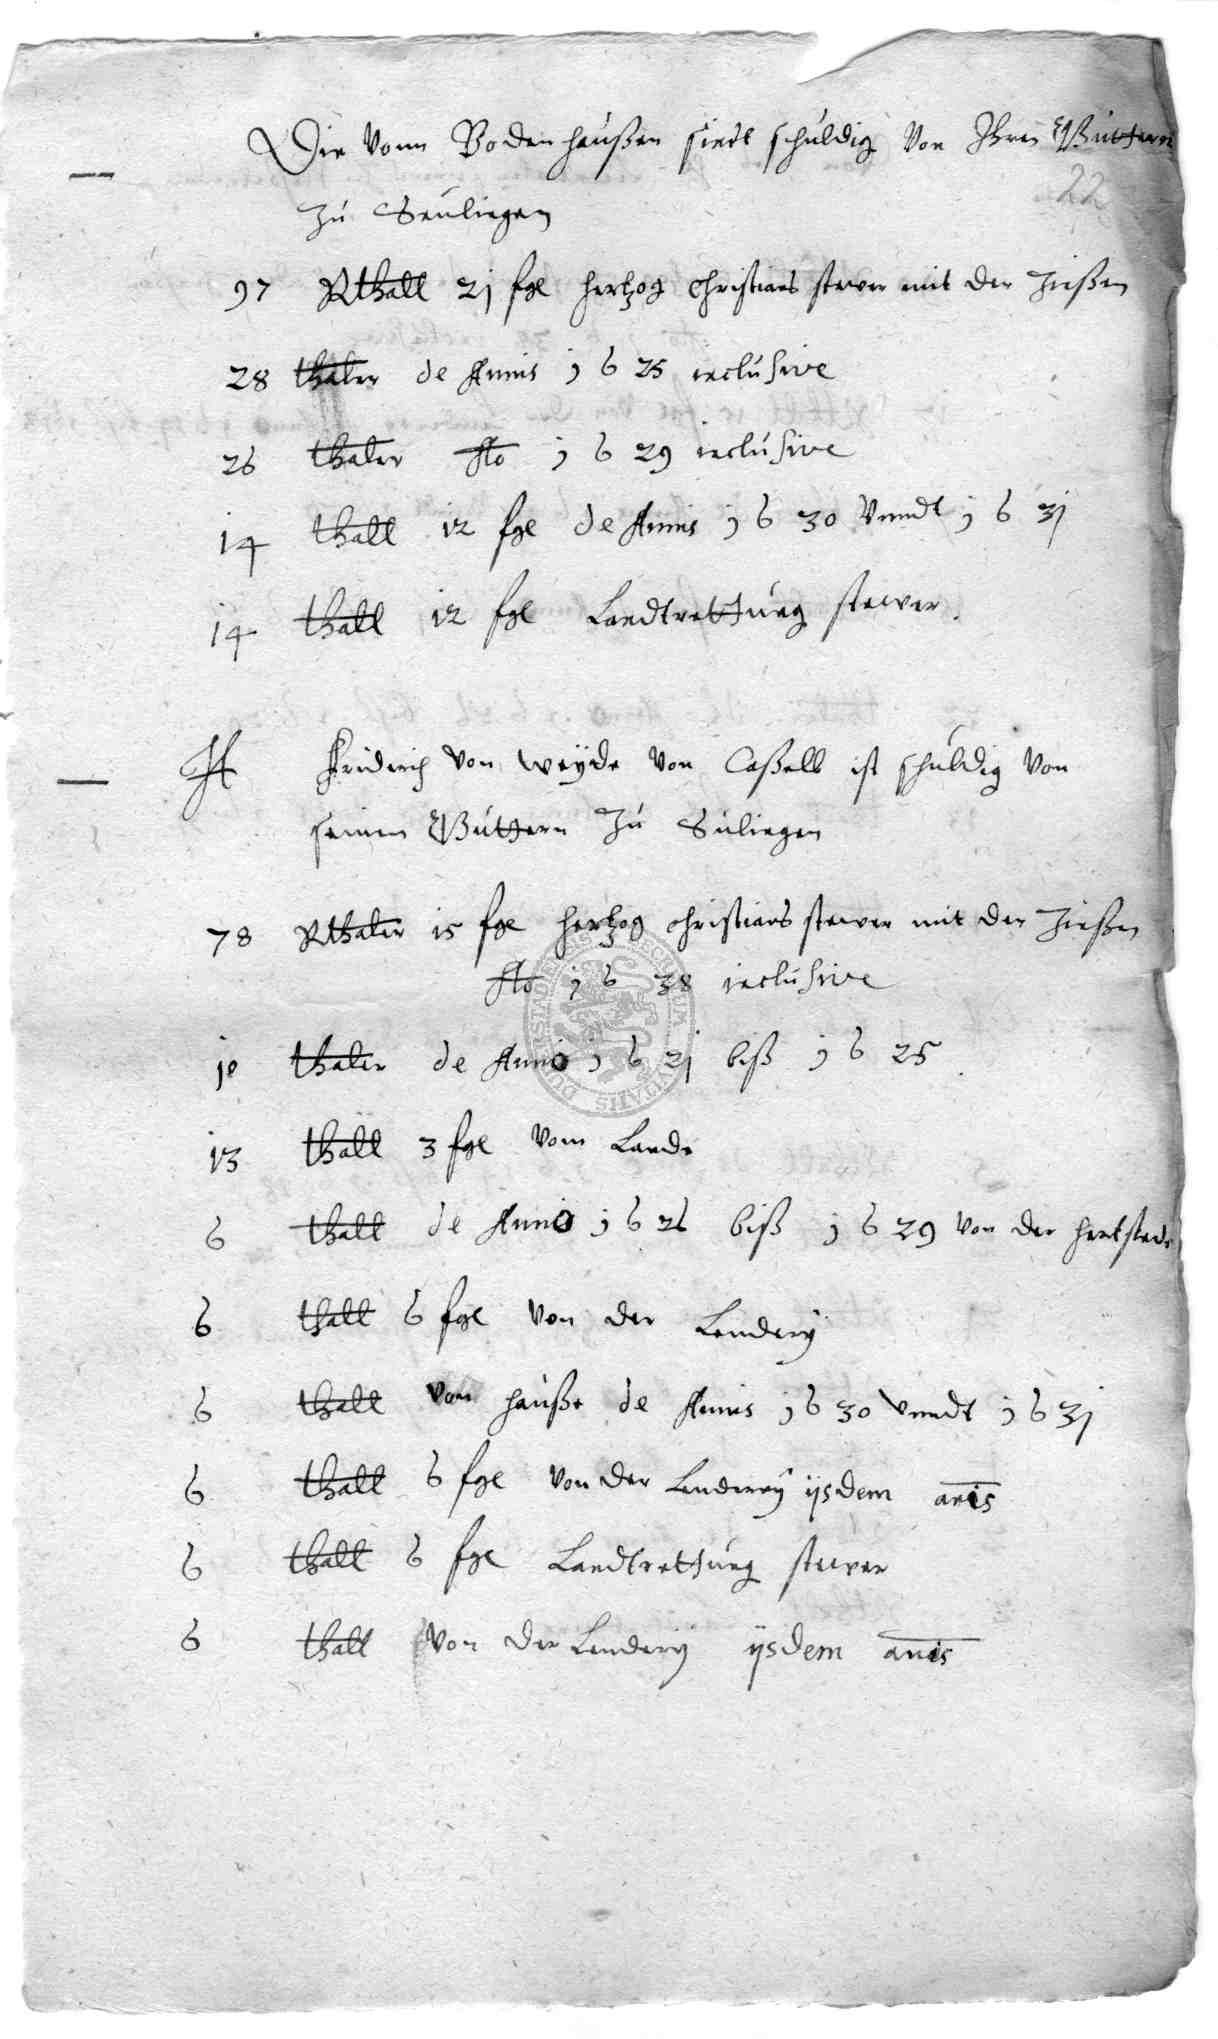 Die vonn Bodenhaußen sindt schuldig von Ihren Güttern
22
Zu Seulingen
97 Rthall 21 fgl hertzog Christians stewer mit den Zinßen
28 thaler de Annis 1625 inclusive
26 thaler Ao 1629 inclusive
14 thall 12 fgl de Annis 1630 Vnndt 1631
14 thall 12 fgl Landtrettung stewer
H Friderich von weÿde von Caßell ist schuldig von
seinen Güttern Zu Sulingen
78 Rthaler 15 fgl hertzog Christians stewer mit den Zinßen
Ao 1638 inclusive
10 thaler de Anno 1621 biß 1625
13 thall 3 fgl vom Lande
6 thall de Anno 1626 biß 1629 von der hertstede
6 thall 6 fgl von der Lenderÿ
6 thall vom hauße de Annis 1630 vnndt 1631
6 thall 6 fgl von der Lendereÿ ijsdem anis
6 thall 6 fgl Landtrettung stewer
6 thall von der Lenderÿ ijsdem anis